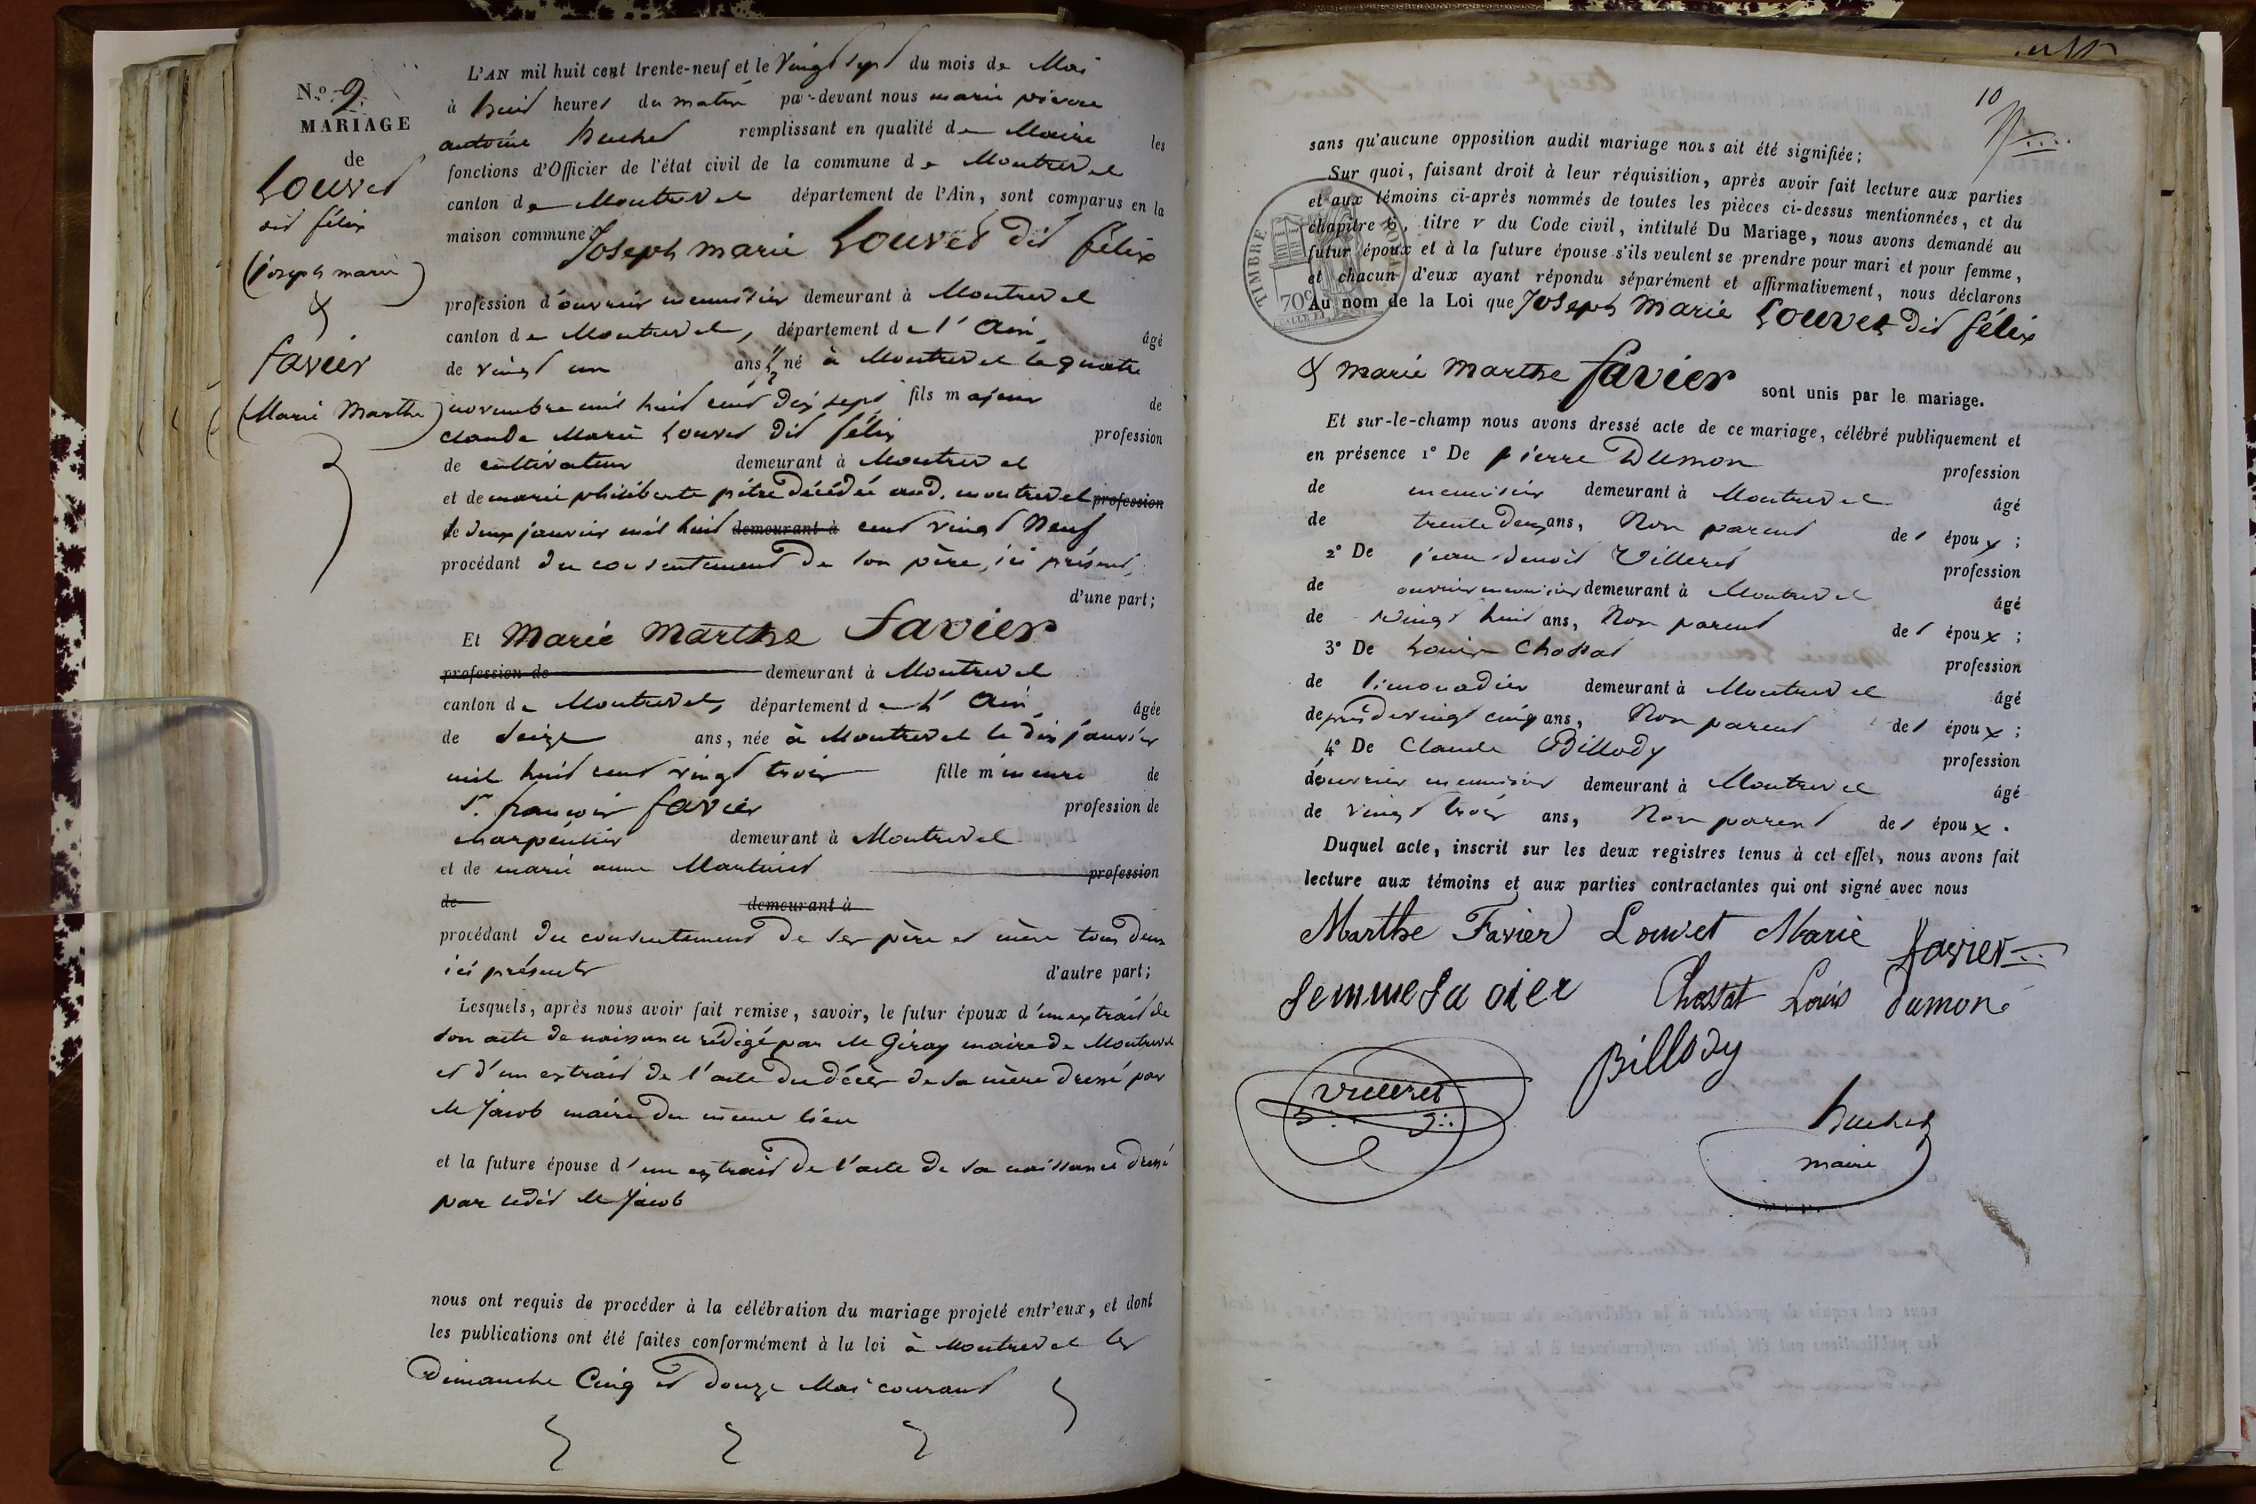 N.º 9.
MARIAGE
de
Louvet
dit félix
(joseph marie)
&
favier
(Marie Marthe)
L'AN mil huit cent trente-neuf et le vingt sept du mois de Mai
à huit heures du matin par-devant nous marie
antoine huchet remplissant en qualité de Maire les
fonctions d'Officier de l'état civil de la commune de Montrevel
canton de Montrevel département de l'Ain, sont comparus en la
maison commune Joseph marie Louvet dit félix
profession d'ouvrier menuisier demeurant à Montrevel
canton de Montrevel, département de l'Ain âgé
de vingt un ans 1/2 né à Montrevel le quatre
novembre mil huit cent dix sept fils majeur de
Claude Marie Louvet dit félix profession
de cultivateur demeurant à Montrevel
et de marie philiberte pitre décédée aud. montrevel profession
le deux janvier mil huit demeurant à cent vingt Neuf
procédant du consentement de son père, ici présent,
d'une part;
Et Marie Marthe favier
profession de demeurant à Montrevel
canton de Montrevel, département de l'Ain, âgée
de seize ans, née à Montrevel le dix janvier
mil huit cent vingt trois fille mineure de
Sr. françois favier profession de
charpentier demeurant à Montrevel
et de marie anne Martinet profession
de demeurant à
procédant du consentement de ses père et mère tous deux
ici présents d'autre part;
Lesquels, après nous avoir fait remise, savoir, le futur époux d'un extrait de
son acte de naissance rédigé par M Giroy maire de Montrevel
et d'un extrait de l'acte du décès de sa mère dressé par
M Jacob maire du même lieu
et la future épouse d'un extrait de l'acte de sa naissance dressé
par ledit M Jacob
nous ont requis de procéder à la célébration du mariage projeté entr'eux, et dont
les publications ont été faites conformément à la loi à Montrevel les
Dimanche Cinq et douze Mai courant
10
sans qu'aucune opposition audit mariage nous ait été signifiée;
Sur quoi, faisant droit à leur réquisition, après avoir fait lecture aux parties
et aux témoins ci-après nommés de toutes les pièces ci-dessus mentionnées, et du
chapitre 6, titre v du Code civil, intitulé Du Mariage, nous avons demandé au
futur époux et à la future épouse s'ils veulent se prendre pour mari et pour femme,
et chacun d'eux ayant répondu séparément et affirmativement, nous déclarons
Au nom de la Loi que Joseph Marie Louvet dit félix
& marie Marthe favier sont unis par le mariage.
TIMBRE ROYAL
70c
Et sur-le-champ nous avons dressé acte de ce mariage, célébré publiquement et
en présence 1º De pierre Dumon profession
de menuisier demeurant à Montrevel âgé
de trente deux ans, Non parent des époux;
2º De jean benoit Villeret profession
de ouvrier menuisier demeurant à Montrevel âgé
de vingt huit ans, Non parent des époux;
3º De Louis Chossat profession
de limonadier demeurant à Montrevel âgé
de près de vingt cinq ans, Non parent des époux;
4º De Claude Billody profession
d'ouvrier menuisier demeurant à Montrevel âgé
de vingt trois ans, Non parent des époux.
Duquel acte, inscrit sur les deux registres tenus à cet effet, nous avons fait
lecture aux témoins et aux parties contractantes qui ont signé avec nous
Marthe Favier Louvet Marie favier
femme favier Chossat Louis dumon
Billody
Villeret
huchet
maire